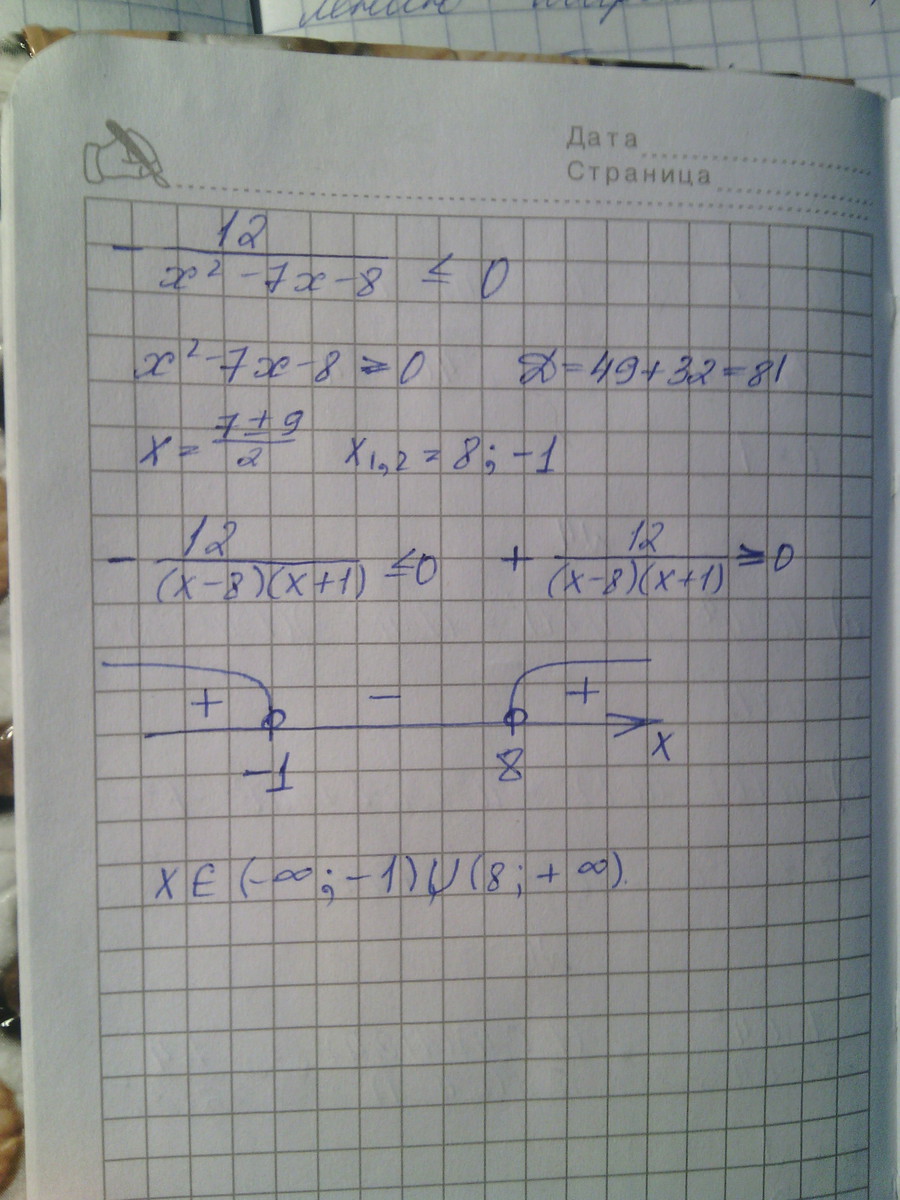 Дата
Страница
- 12/(x² - 7x - 8) ≤ 0
x² - 7x - 8 > 0 D = 49 + 32 = 81
x = (7 ± 9)/2 x₁,₂ = 8; -1
- 12/((x-8)(x+1)) ≤ 0 + 12/((x-8)(x+1)) ≥ 0
+ - +
-1 8 x
x ∈ (-∞; -1) ∪ (8; +∞).